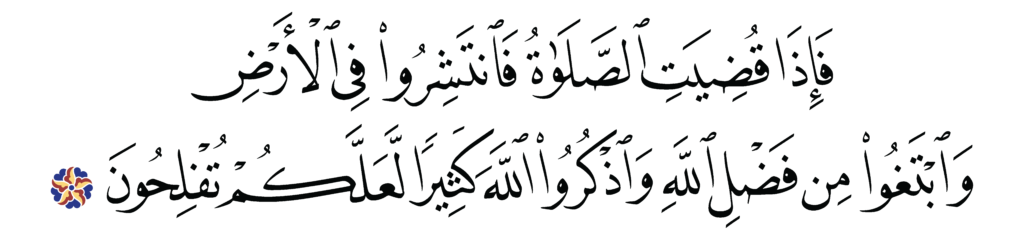 فَإِذَا قُضِيَتِ ٱلصَّلَوٰةُ فَٱنتَشِرُوا۟ فِى ٱلْأَرْضِ
وَٱبْتَغُوا۟ مِن فَضْلِ ٱللَّهِ وَٱذْكُرُوا۟ ٱللَّهَ كَثِيرًا لَّعَلَّكُمْ تُفْلِحُونَ